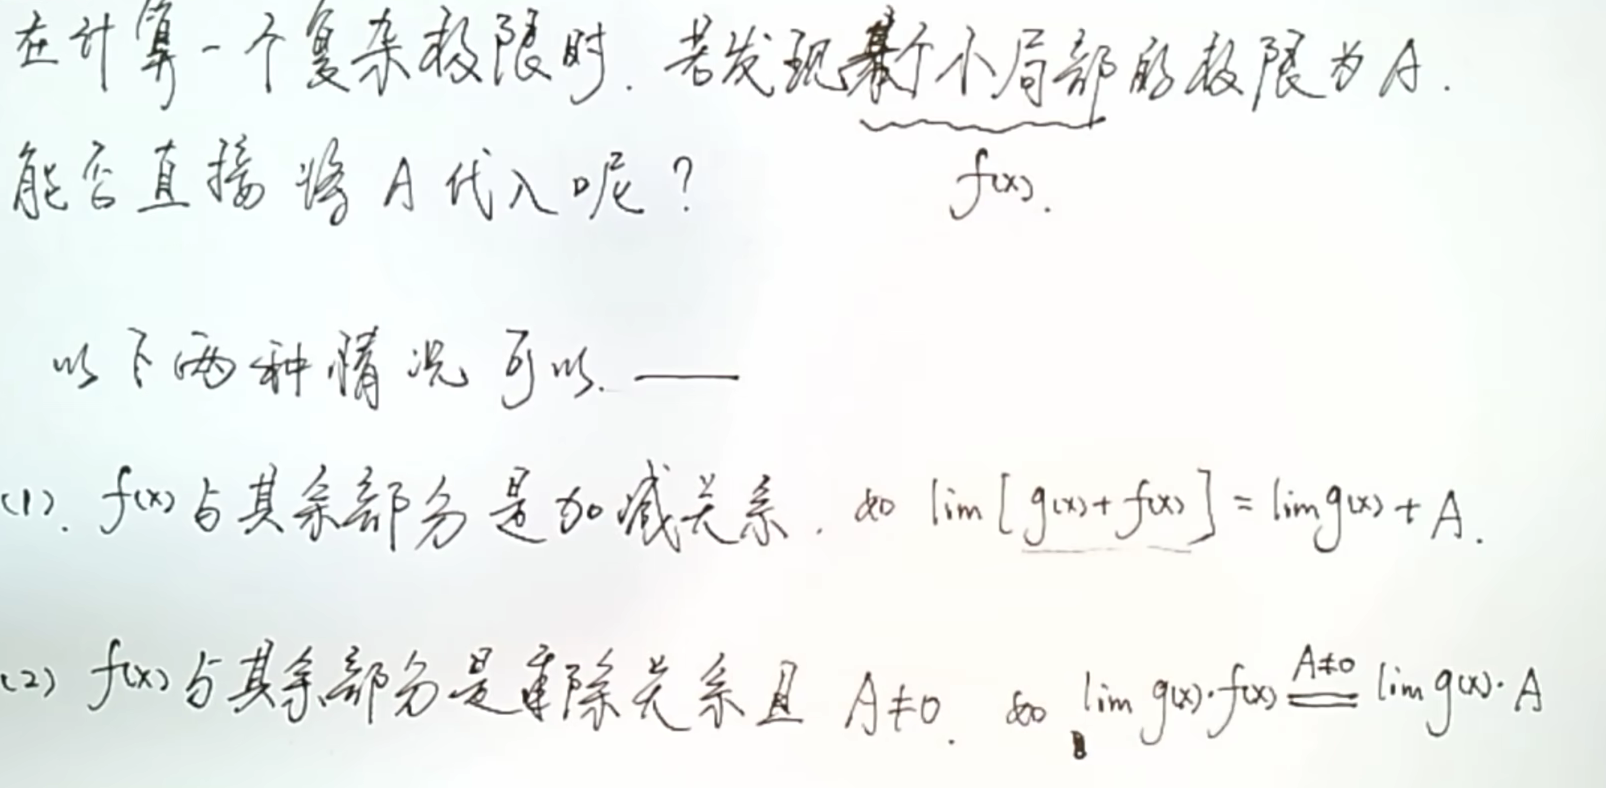 在计算一个复杂极限时.若发现某个小局部的极限为A.
f(x).
能否直接将A代入呢?
以下两种情况可以.——
(1).f(x)与其余部分是加减关系.如 lim[g(x)+f(x)]=lim g(x)+A.
(2) f(x)与其余部分是乘除关系且 A≠0.如 lim g(x)·f(x) A≠0 = lim g(x)·A